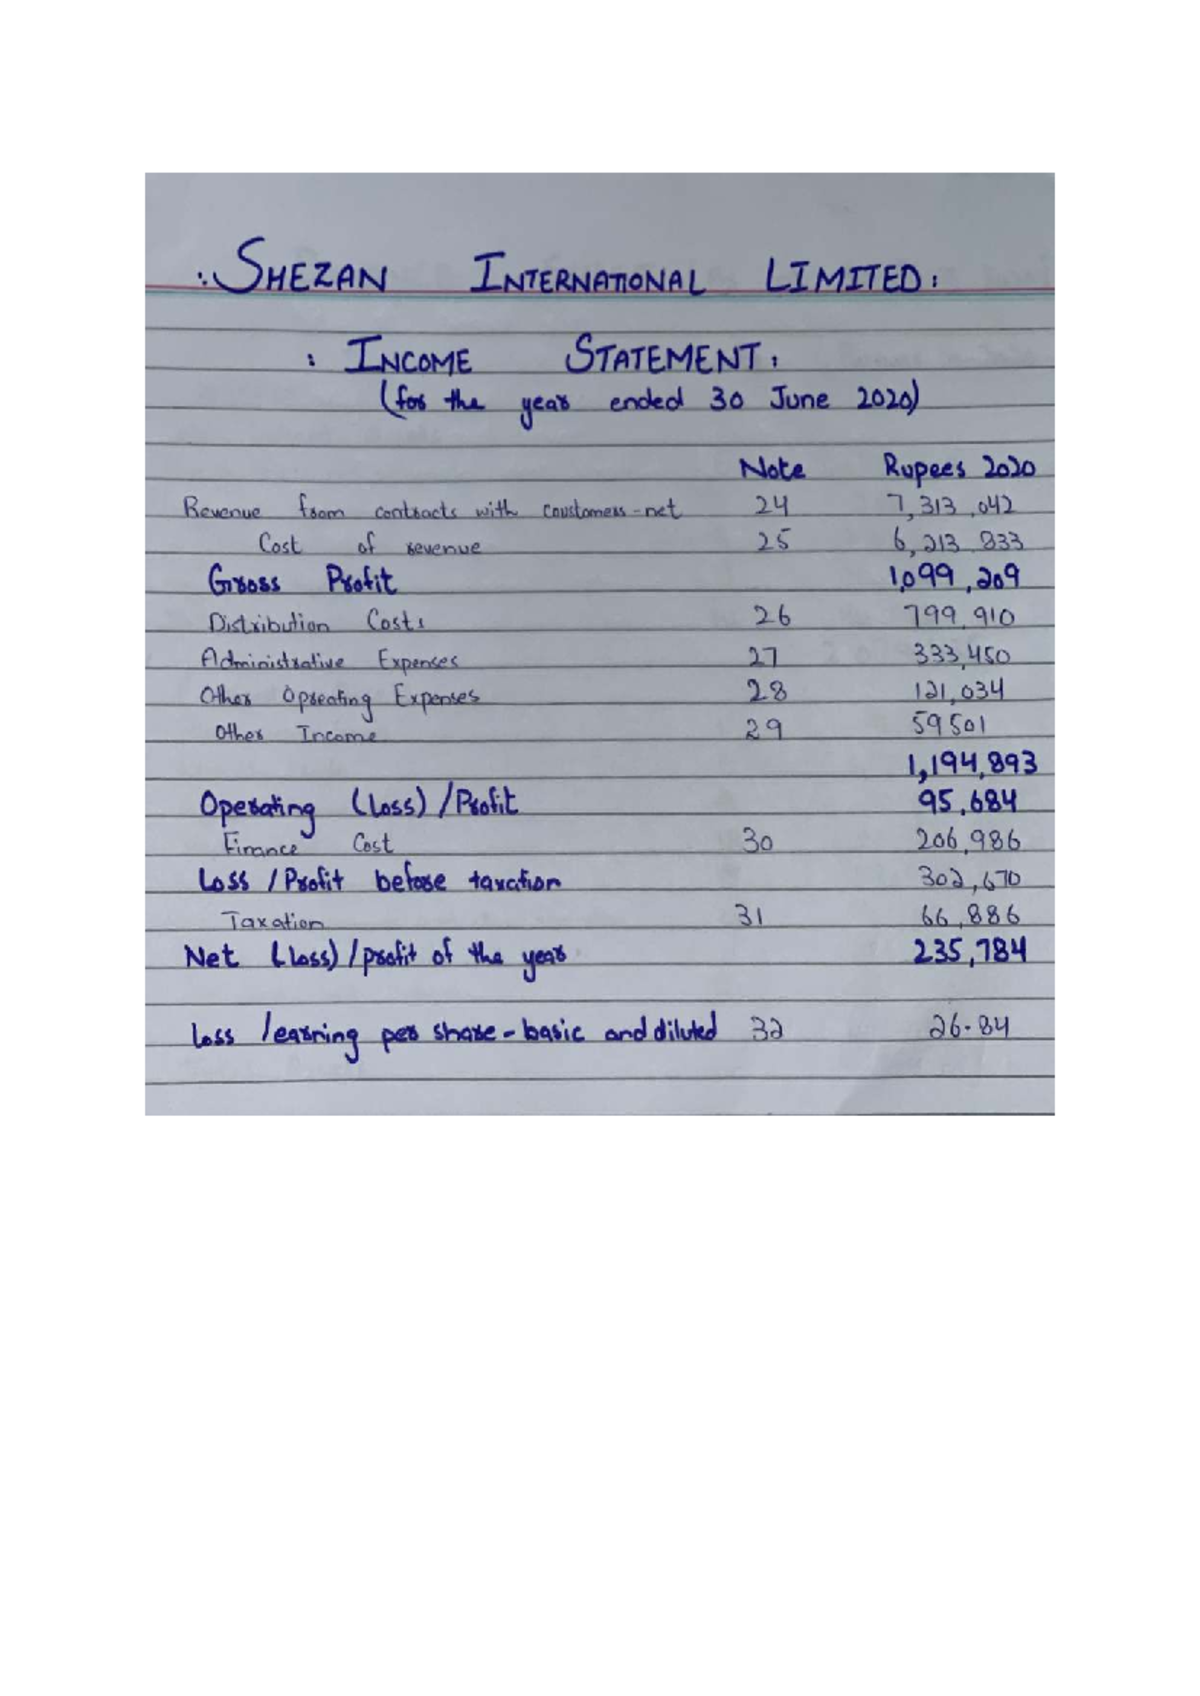 : SHEZAN INTERNATIONAL LIMITED :
: INCOME STATEMENT :
(for the year ended 30 June 2020)
Note Rupees 2020
Revenue from contracts with coustomers-net 24 7,313,042
Cost of revenue 25 6,213,833
Gross Profit 1,099,209
Distribution Costs 26 799,910
Administrative Expenses 27 333,450
Other Opreating Expenses 28 121,034
Other Income 29 59501
1,194,893
Operating (Loss) / Profit 95,684
Finance Cost 30 206,986
Loss / Profit before taxation 302,670
Taxation 31 66,886
Net (loss) / profit of the year 235,784
loss / earning per share - basic and diluted 32 26.84